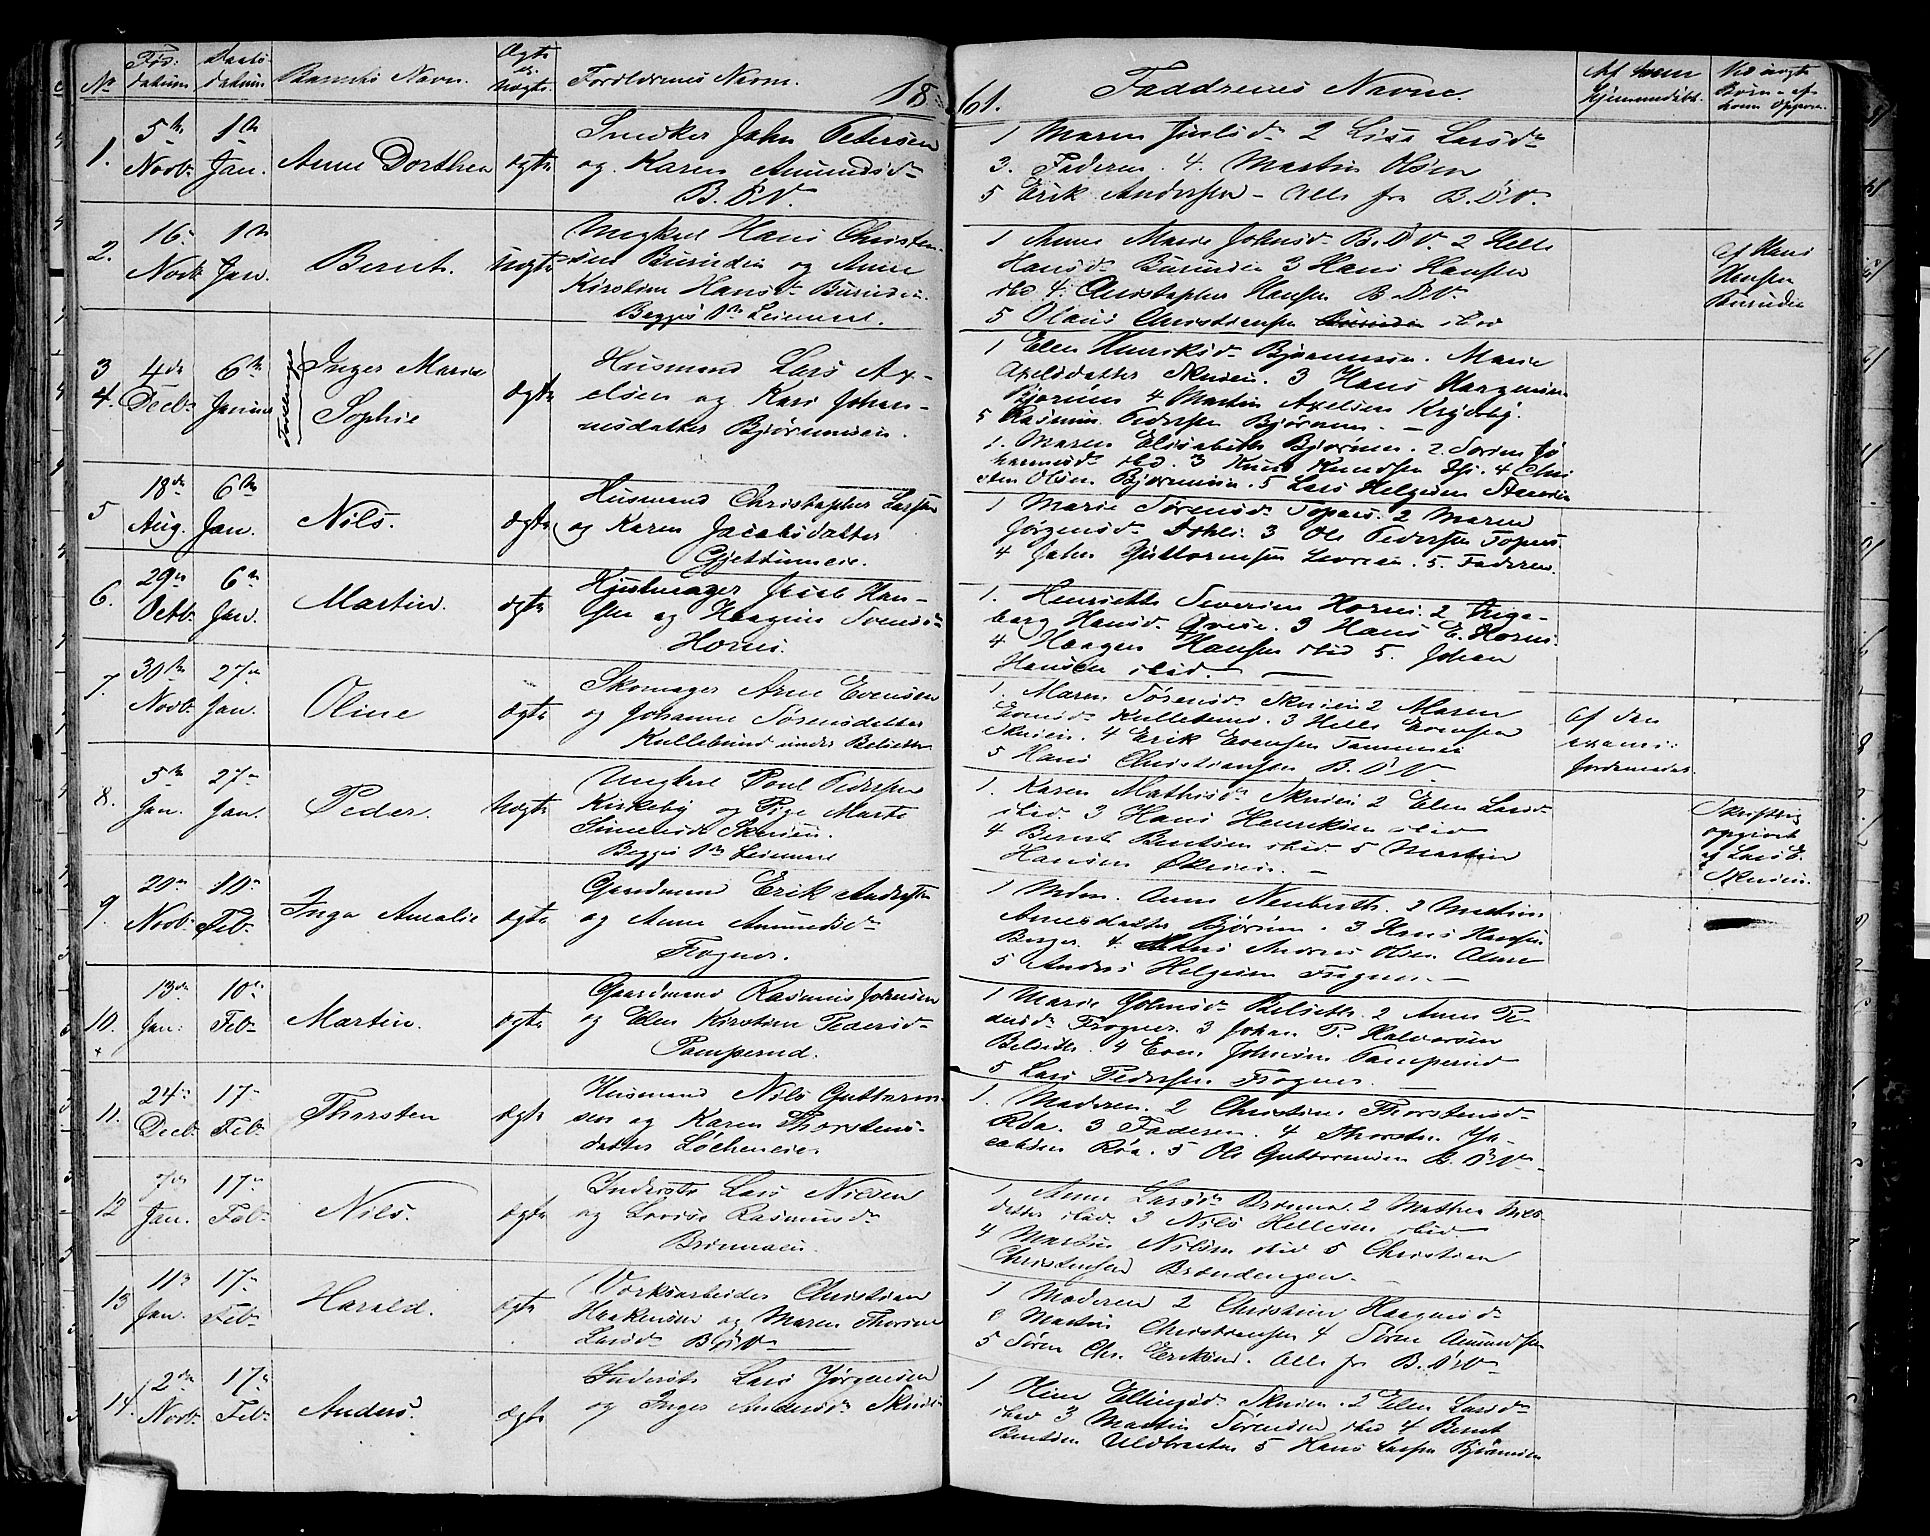 No Fød: datum Daabs datum Barnets Navn. Ægte el. Uægte Forældrenes Navne. 18
61. Faddrenes Navne. Af hvem hjemmedøbt. Ved uægte Børn - af hvem opgiv.
1. 5te Novb. 1te Jan. Anne Dorthea ægte
Smeker John Petersen
og Karen Amundsd.
B. D. V.
1 Maren Juelsd. 2 Lise Larsd.
3. Faderen. 4. Martin Olsen
5 Erik Andersen - Alle fra B.D.V.
2. 16. Novb. 1te Jan. Bernt. uægte
Ungkarl Hans Christen-
sen Burudeie og Anne
Kirstine Hansd. Burudeie.
Begges 1ste Leiermaal.
1 Anne Marie Johnsd. B.D.V. 2 Helle
Hansd. Burudeie 3 Hans Hansen
ibid 4. Christopher Hansen B.D.V.
5 Olaus Christiansen ibid
af Hans
Hansen
Burudeie
3 4. 4de Decb. 6te Januar Tvillinger Inger Marie
Sophie ægte
Husmand Lars Ax-
elsen og Kari Johan-
nesdatter Bjørumeie.
1 Elen Henriksd. Bjørumeie. Marie
Axelsdatter Skuien. 3 Hans
Bjørum 4 Martin Axelsen
5 Rasmus Pedersen Bjørum. -
1. Maren Elisabeth Bjørum. 2. Søren Jo
hannesd. ibid. 3 Knud Knudsen 4 Chri
sten Olsen Bjørumeie. 5 Lars Helgesen
5 18de Aug. 6te Jan. Nils. ægte
Husmand Christopher Larsen
og Karen Jacobsdatter
Gjettumeie.
1 Marie Sørensd. Topaas. 2 Maren
Jørgensd. Dahli. 3 Ole Pedersen Topaas.
4 John Guttormsen 5. Faderen.
6. 29de Octb. 6te Jan. Martin. ægte
Hjulmager Jacob Han-
sen og Haagine Svends.
Horni.
1. Henriette Severine Horni. 2 Inge-
borg Hansd. 3 Hans E. Horni.
4 Haagen Hansen ibid 5. Johan
Hansen ibid. -
7. 30te Novb. 27de Jan. Oline ægte
Skomager Arne Evensen
og Johanne Sørensdatter
Kullebund under Belset
1. Maren Sørensd. Skuien 2 Maren
Evensd. Kullebund. 3 Helle Evensen
Skuien. 4 Erik Evensen Tanumeie
5 Hans Christiansen B.D.V.
af den
exami:
Jordemoder.
8. 5te Jan. 27de Jan. Peder. Uægte
Ungkarl Poul Pedersen
Kirkeby og Pige Marte
Simensd. Skuien.
Begges 1ste Leiermaal
1. Karen Mathisd. Skuien 2 Elen Larsd.
ibid. 3 Hans Henriksen ibid
4 Bernt Bentsen ibid 5 Martin
Hansen Økrien. -
Skriftlig
opgivet
af Lars E.
Skuien.
9. 20de Novb. 10de Feb. Inga Amalie ægte
Gaardmand Erik Andersen
og Anne Amundsd.
Frogner.
1 Mdm. Anne Neuberth. 2 Martine
Arnesdatter Bjørum. 3 Hans Hansen
Berger. 4. Hans Andreas Olsen
5 Anders Helgesen Frogner. -
10. 13de Jan: 10de Feb. Martin. ægte
Gaardmand Rasmus Johnsen
og Elen Kirstine Pedersd.
Tamperud.
1 Marie Johnsd. Belset. 2 Anne Pe-
dersd. Frogner. 3 Johan P. Halvorsen
Belset. 4 Even Johnsen Tamperud
5 Lars Pedersen Frogner. -
11. 24de Decb. 17de Feb. Thorsten ægte
Husmand Nils Guttorm-
sen og Karen Thorstens-
datter Løkkeneie
1. Moderen. 2 Christine Thorstensd.
Røa. 3 Faderen. 4 Thorsten Ja-
cobsen Røa. 5 Ole Guttormsen B.D.V.
12 Jan. 17de Feb. Nils. ægte
Inderst Lars Nilsen
og Lovise Rasmusd.
Brønnaeie.
1 Anne Larsd. Brønna. 2 Mathea Nils-
datter ibid. 3 Nils Hellesen ibid.
4 Martin Nilsen ibid 5 Christian
Christensen Brændengen. -
13 11te Jan. 17de Feb. Harald. ægte
Værksarbeider Christian
Haakensen og Maren Thorine
Larsd. B.D.V.
1 Moderen 2 Christine Haagensd.
3 Martin Christiansen 4 Søren Amundsen
5 Søren Chr. Eriksen. Alle fra B.D.V.
14. 2de Novb. 17de Feb. Anders. ægte
Inderst Lars Jørgensen
og Inger Andersd. Skuien
1 Oline Ellingsd. Skuien. 2 Elen Larsd.
ibid 3 Martin Sørensen ibid 4 Bernt
Bentsen Uldbraaten 5 Hans Larsen Bjørumeie